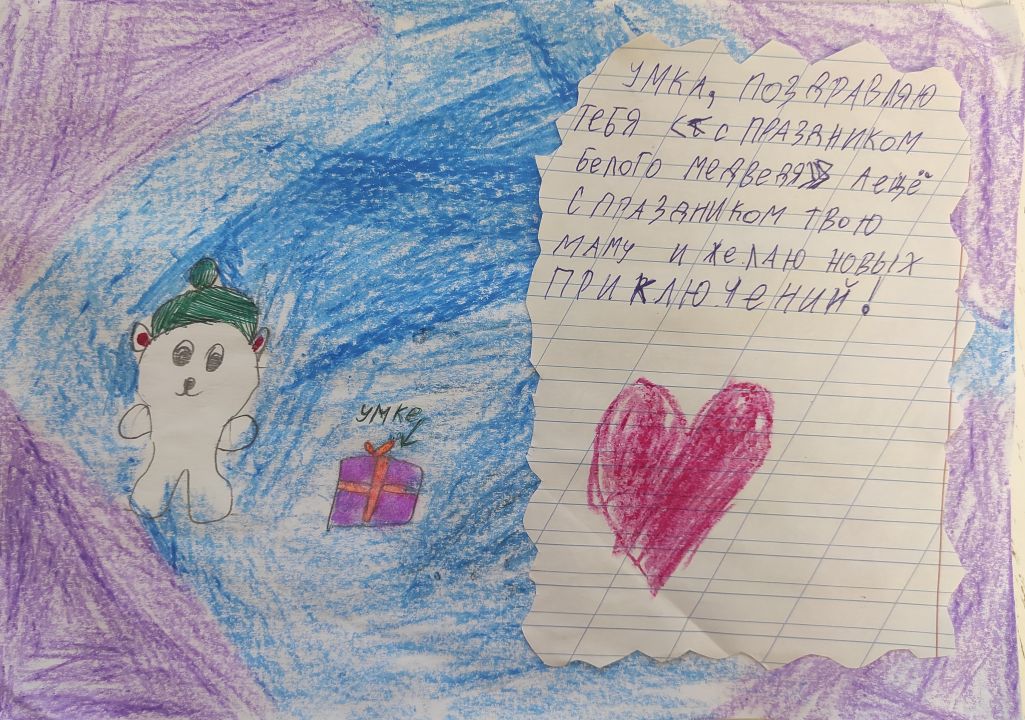 УМКА, ПОЗДРАВЛЯЮ
ТЕБЯ << С ПРАЗДНИКОМ
БЕЛОГО МЕДВЕДЯ>> А ЕЩЁ
С ПРАЗДНИКОМ ТВОЮ
МАМУ И ЖЕЛАЮ НОВЫХ
ПРИКЛЮЧЕНИЙ!
УМКЕ